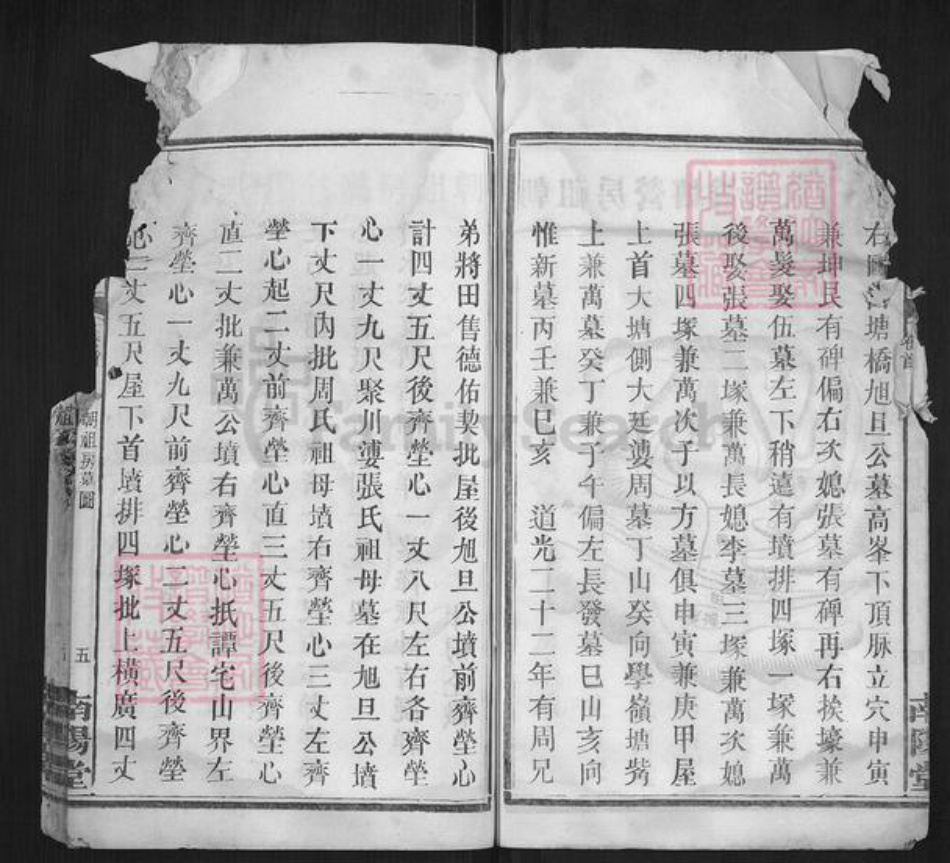 右圖 塘橋旭旦公墓高峯下頂脉立穴申寅
兼坤艮有碑偏右次媳張墓有碑再右挨壕兼
萬髮娶伍墓左下稍遠有墳排四塚一塚兼萬
後娶張墓二塚兼萬長媳李墓三塚兼萬次媳
張墓四塚兼萬次于以方墓俱申寅兼庚甲屋
上首大塘側大廷妻周墓丁山癸向學嶺塘旁
上兼萬墓癸丁兼子午偏左長發墓巳山亥向
惟新墓丙壬兼巳亥 道光二十二年有周兄
弟將田售德佑契批屋後旭旦公墳前齊塋心
計四丈五尺後齊塋心一丈八尺左右各齊塋
心一丈九尺聚川妻張氏祖母墓在旭旦公墳
下丈尺內批周氏祖母墳右齊塋心三丈左齊
塋心起二丈前齊塋心直三丈五尺後齊塋心
直二丈批兼萬公墳右齊塋心抵譚宅山界左
齊塋心一丈九尺前齊塋心二丈五尺後齊塋
心二丈五尺屋下首墳排四塚批上橫廣四丈
朝祖房墓圖
五
南陽堂
卷首
南陽堂
FamilySearch